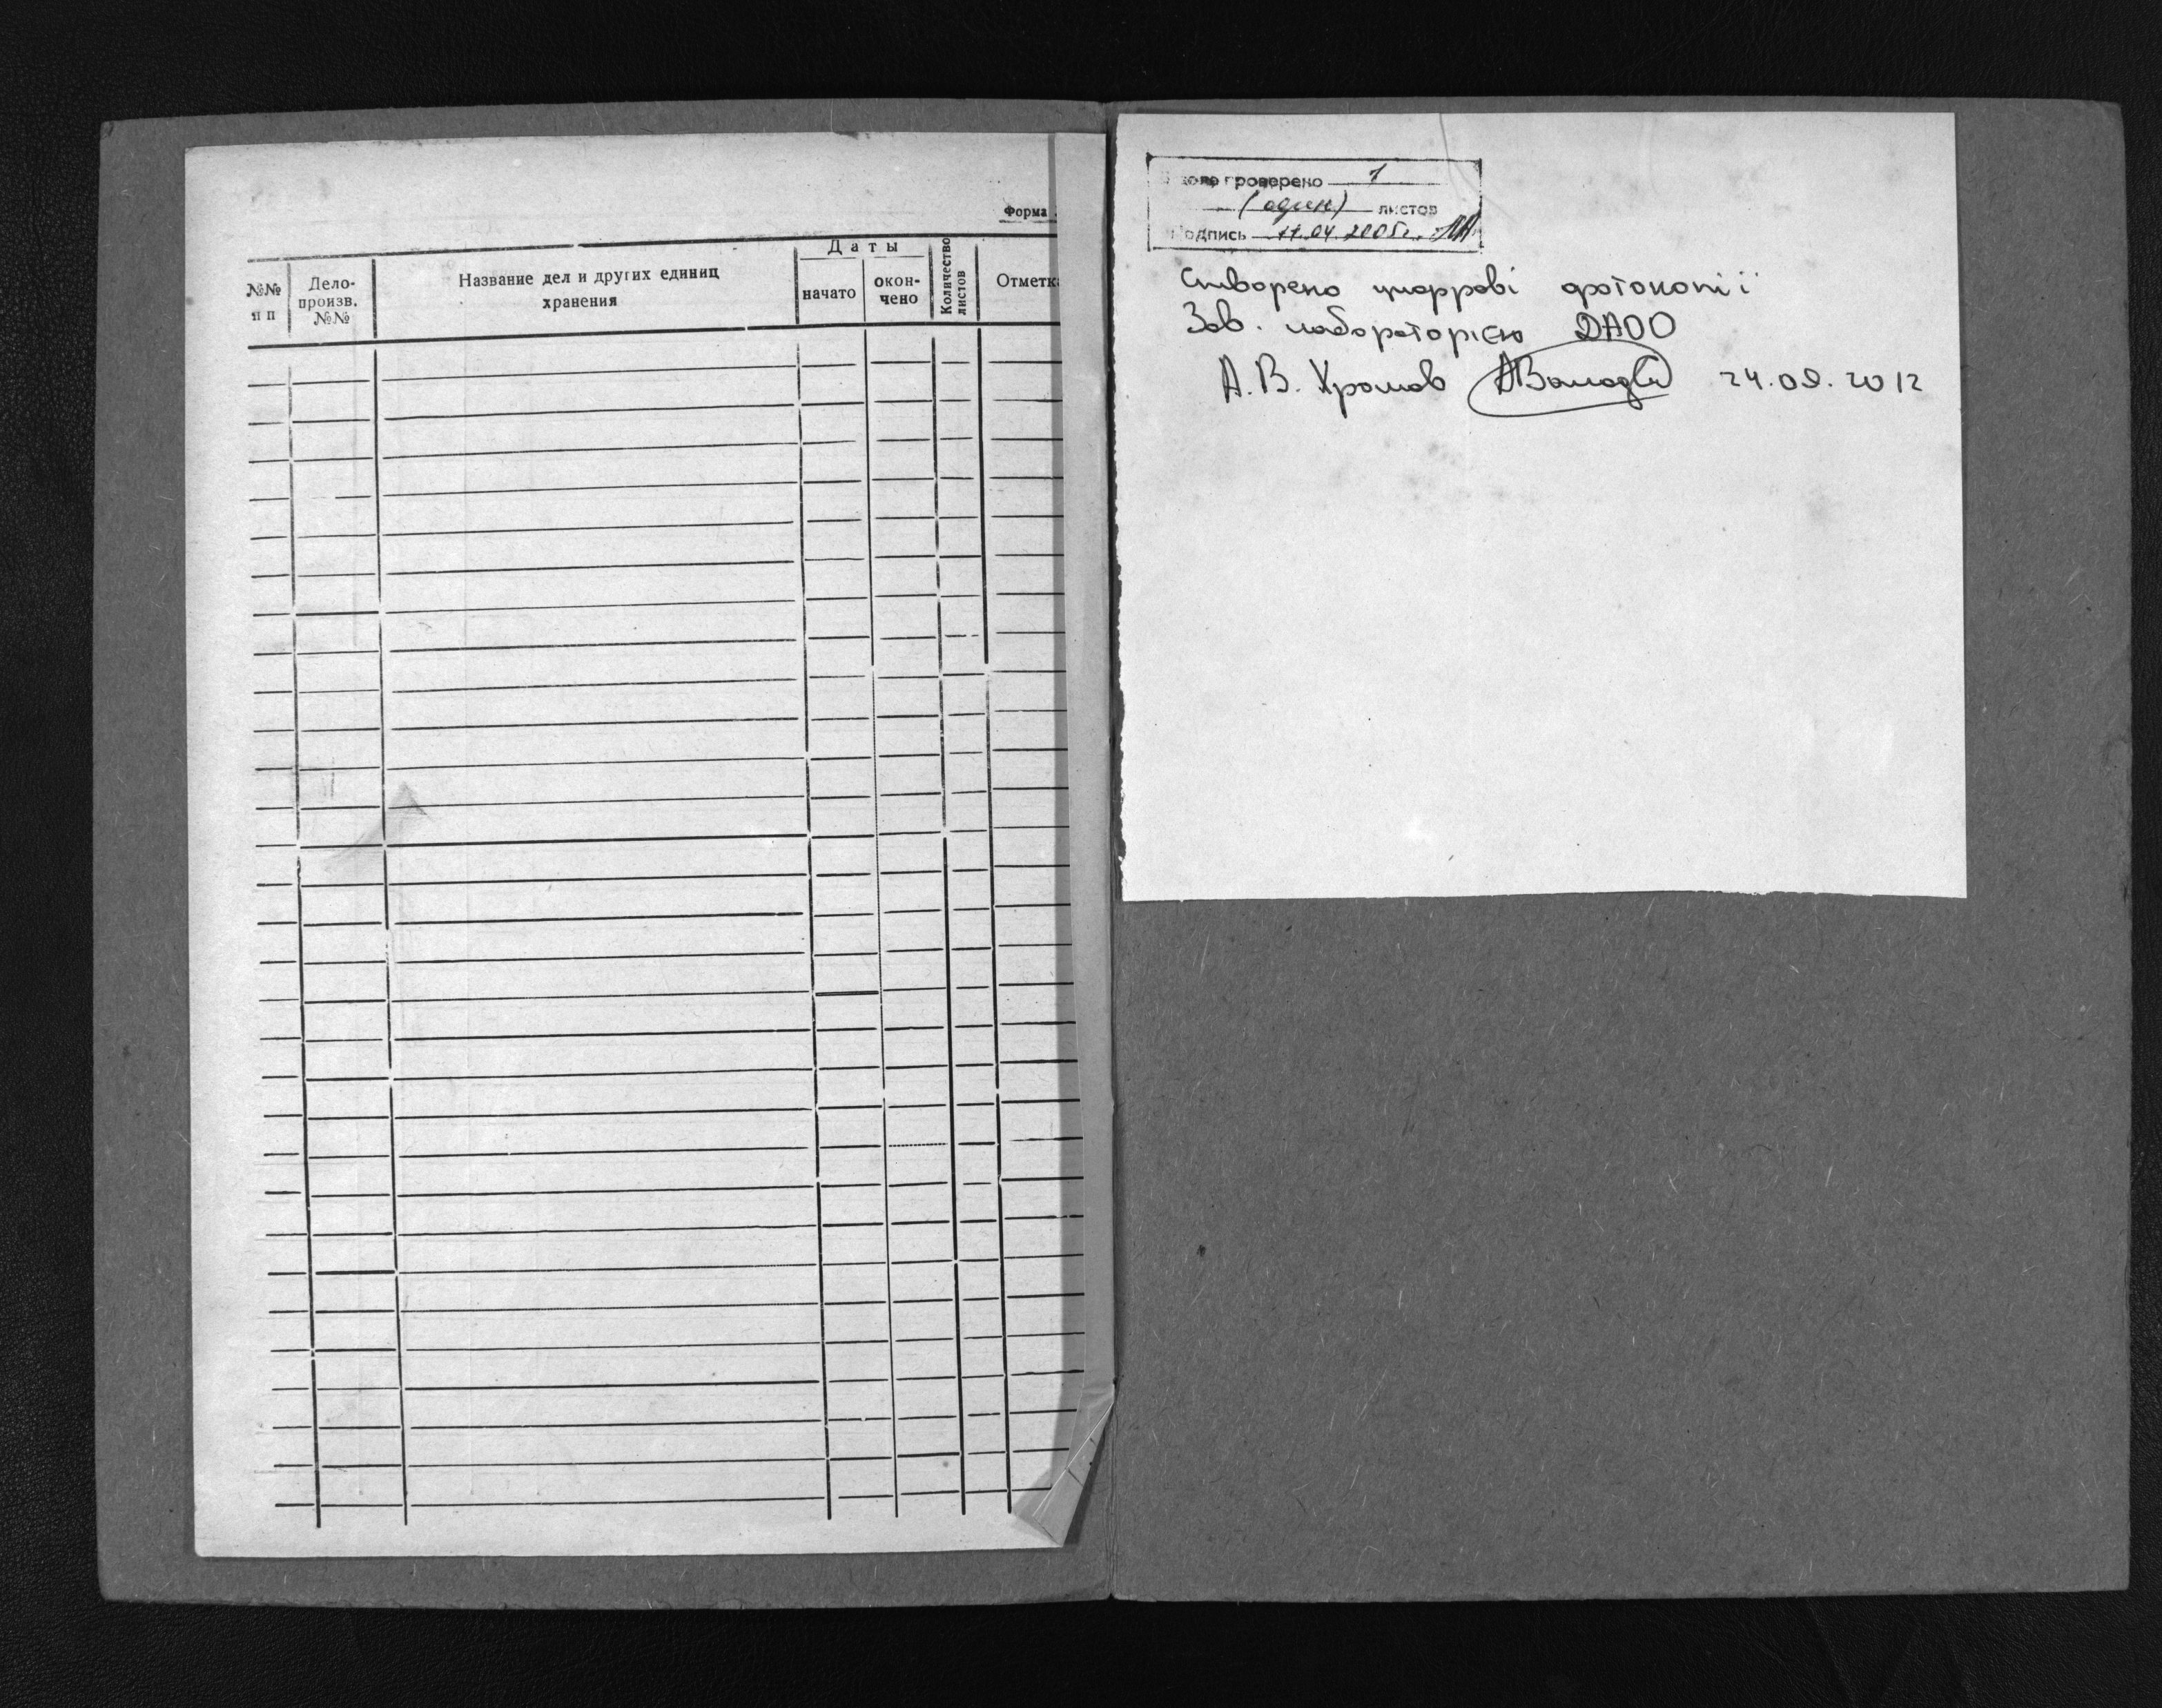 Форма
№№
п п
Дело-
произв.
№№
Название дел и других единиц
хранения
Даты
начато
окон-
чено
Количество
листов
Отметк
проверено 1
(один) листов
Подпись 11.04.2005г.
Створено цифрові фотокопії
Зав. лабораторією ДАОО
А.В. Хромов 24.09.2012